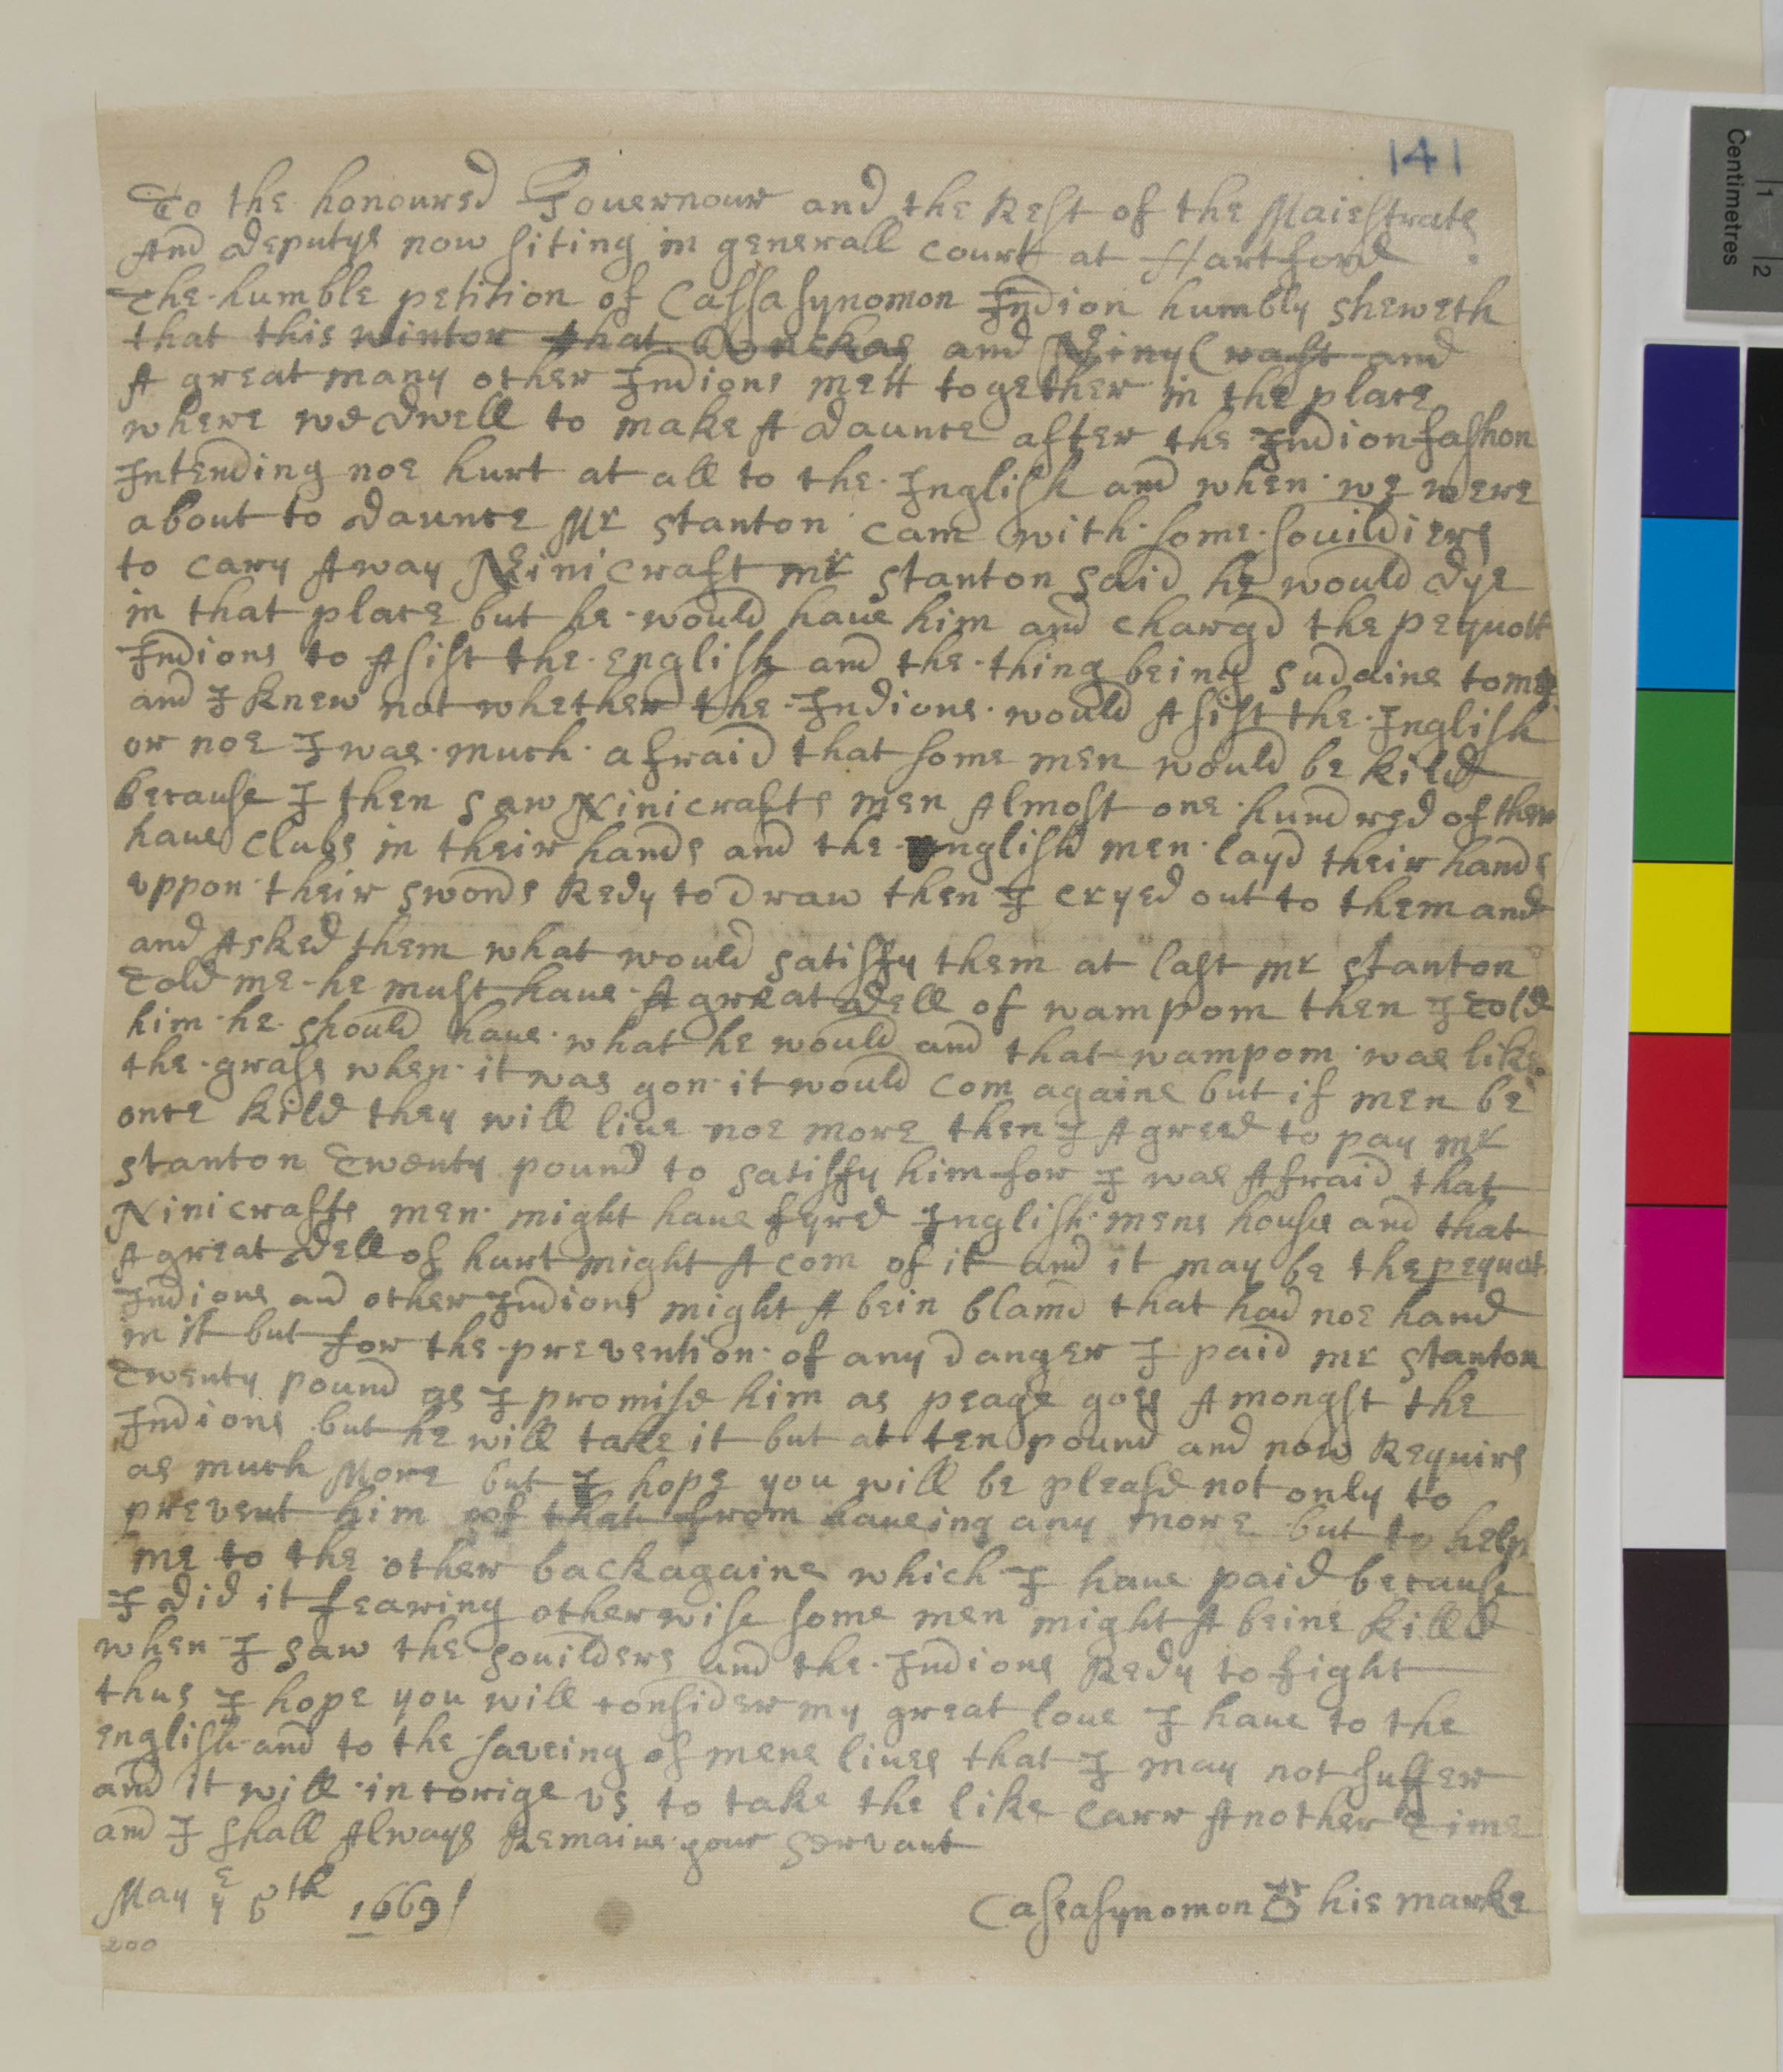 141
To the honoured Gouernour and the Rest of the Maiestrate
And deputys now siting in generall court at Hartford
The humble petition of Cassasynomon Indion humbly sheweth
that this wintor that and Ninycraft and
A great many other Indions mett together in the place
where we dwell to make A daunce after the Indion fashon
Intending noe hurt at all to the Inglish and when we were
about to daunce Mr Stanton cam with some souildiers
to cary Away Ninicraft mr Stanton said he would dye
in that place but he would haue him and chargd the pequott
Indions to Asist the english and the thing being sudaine to me
and I knew not whether the Indions would Asist the Inglish
or noe I was much afraid that some men would be kild
because I then saw Ninicrafts men Almost one hundred of them
haue clubs in their hands and the english men layd their hands
uppon their swords Redy to draw then I cryed out to them and
and Asked them what would satisfy them at last mr Stanton
told me he must haue A great dell of wampom then I told
him he should haue what he would and that wampom was like
the grass when it was gon it would com againe but if men be
once kild they will liue noe more then I Agreed to pay mr
Stanton twenty pound to satisfy him for I was Afraid that
Ninicrafts men might haue fyred Inglish mens housis and that
A great dell of hurt might A com of it and it may be the pequot
Indions and other Indions might A bein blamd that had noe hand
in it but for the prevention of any danger I paid mr Stanton
twenty pound as I promise him as peage goes Amongst the
Indions but he will take it but at ten pound and now Requirs
as much More but I hope you will be pleasd not only to
prevent him of that from haueing any more but to help
me to the other back againe which I haue paid because
I did it fearing otherwise some men might A beine killd
when I saw the souilders and the Indions Redy to fight
thus I hope you will consider my great loue I haue to the
english and to the saveing of mens liues that I may not suffer
and it will incorige us to take the like carr Another time
and I shall Always Remaine your servant
May ye 6th 1669
Casasynomon his marke
200
Centimetres
1
2